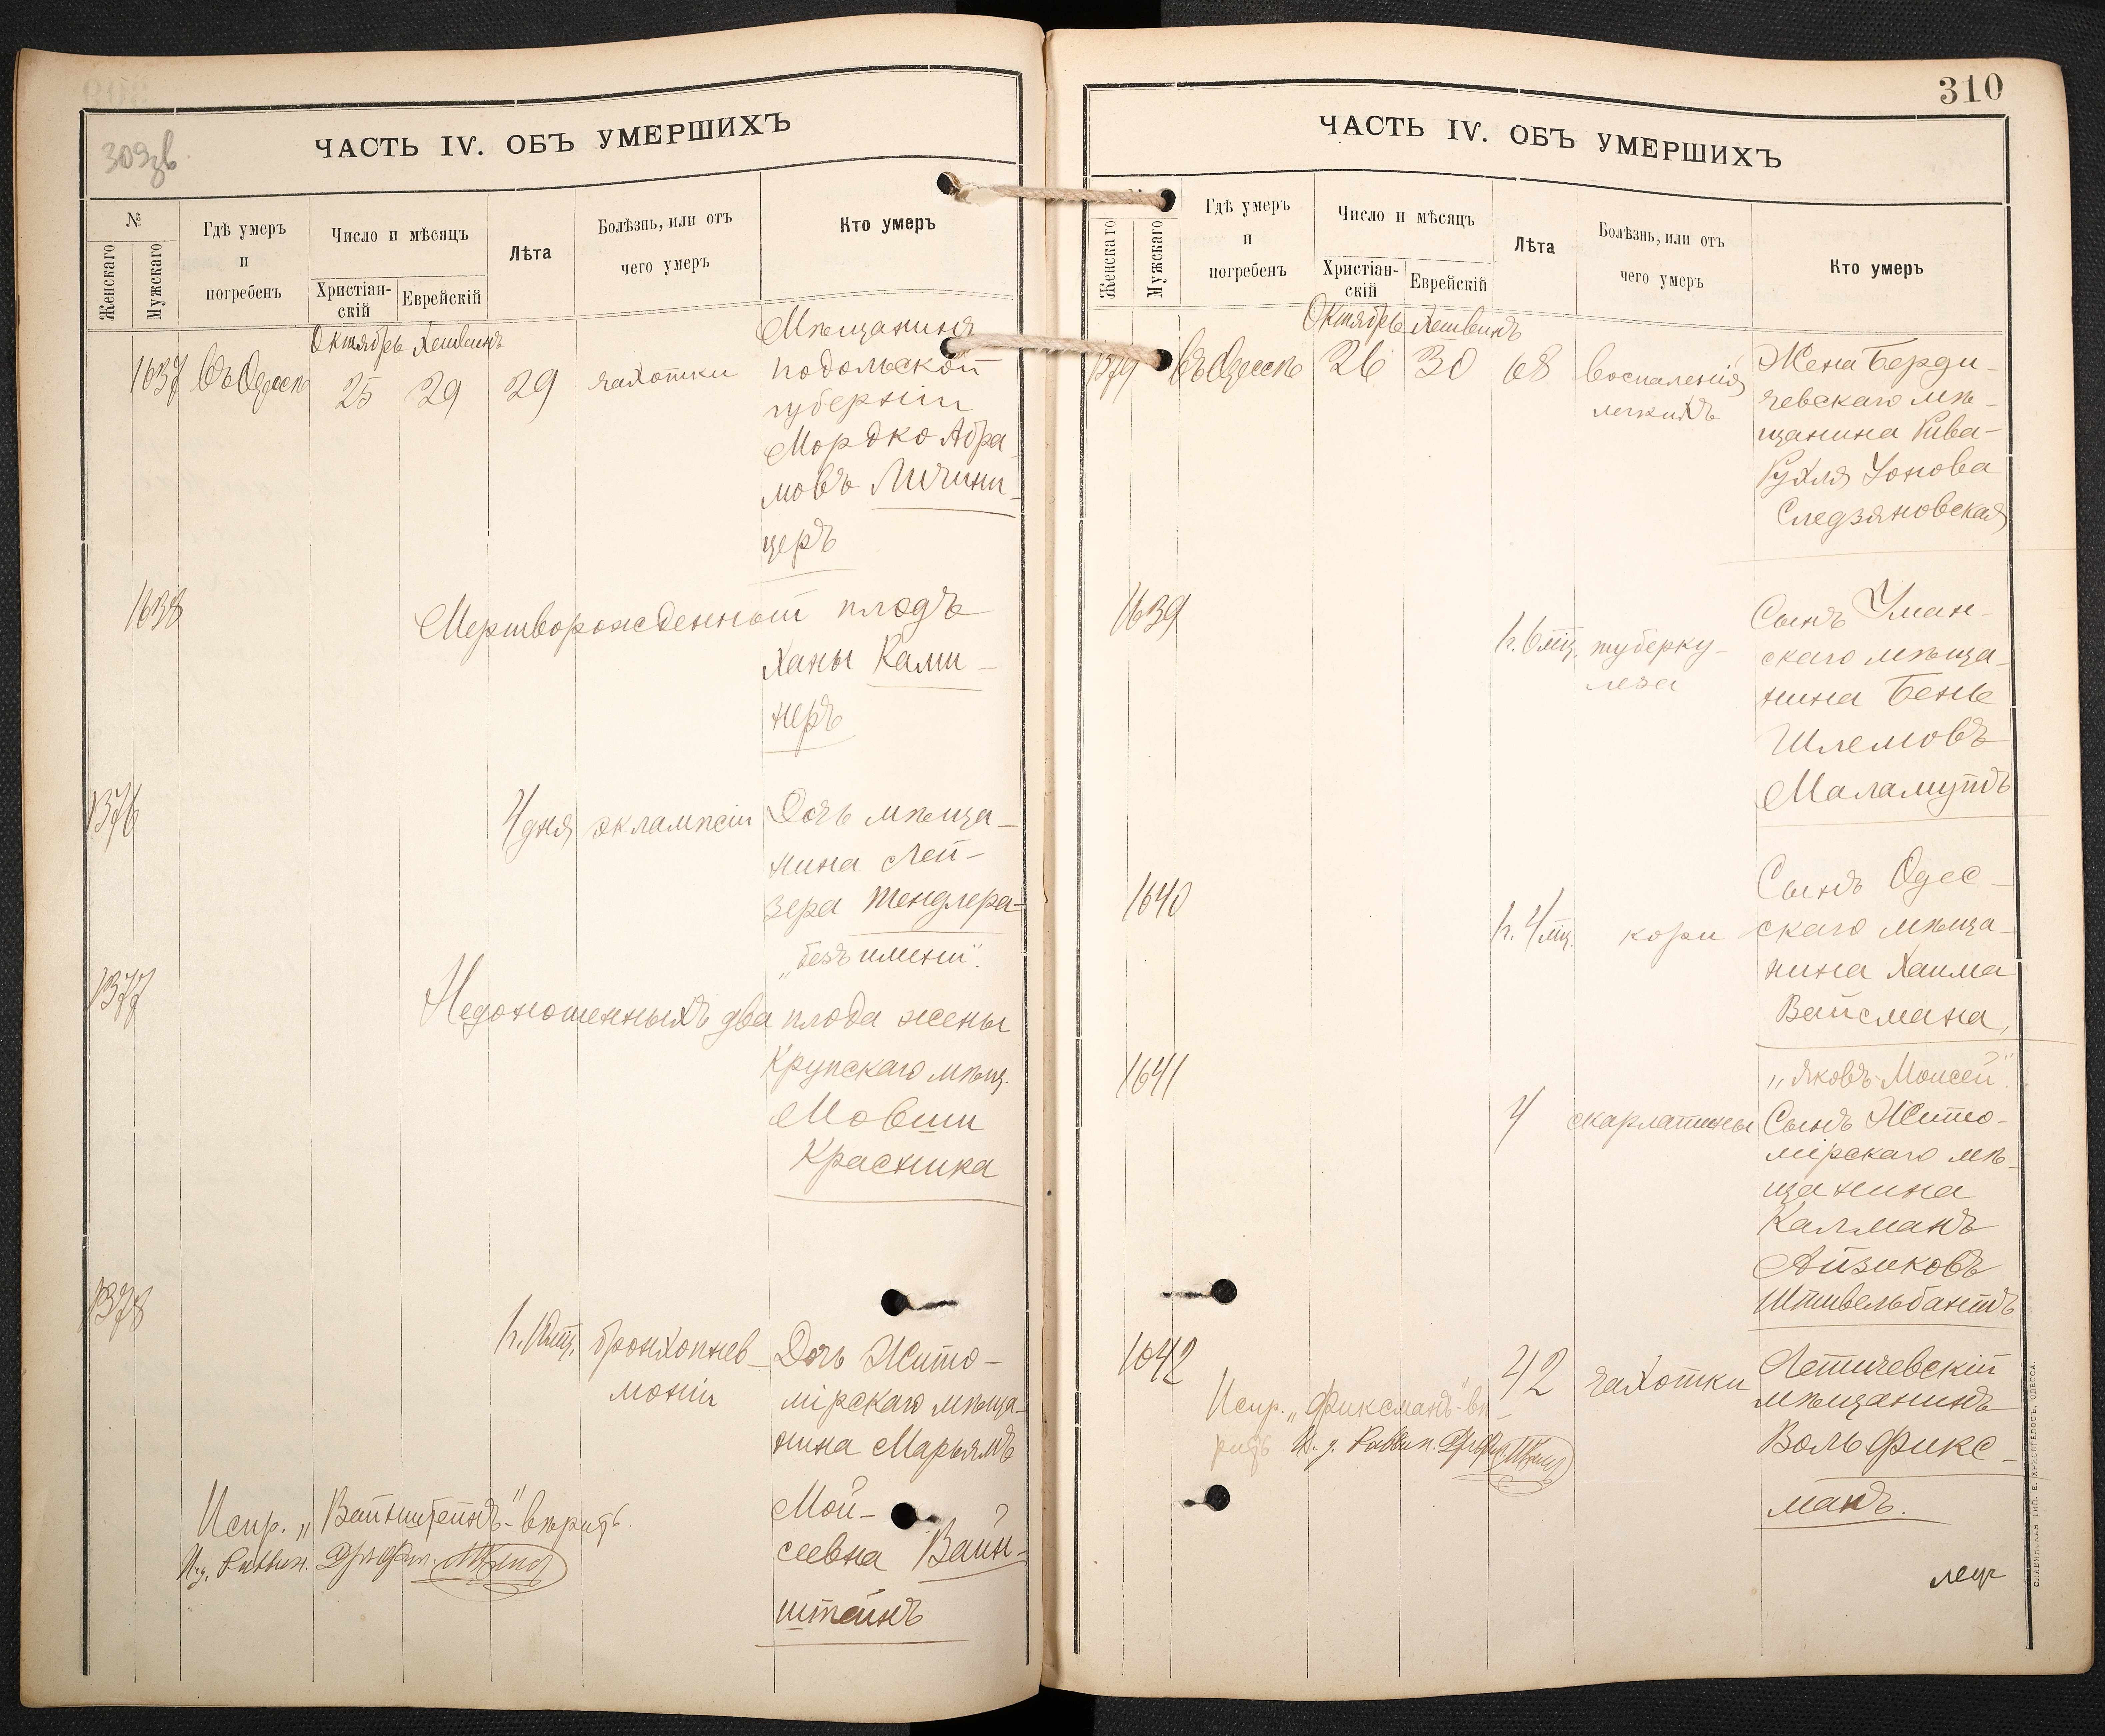 309зв
ЧАСТЬ IV. ОБЪ УМЕРШИХЪ
№
Женскаго
Мужскаго
Гдѣ умеръ
и
погребенъ
Число и мѣсяцъ
Христіан-
скій
Еврейскій
Лѣта
Болѣзнь, или отъ
чего умеръ
Кто умеръ
Октябрь Хешванъ
1637 Въ Одессѣ 25 29 29 чахотки
Мѣщанинъ
подольской
губерніи
Мордко Абра
мовъ Личини-
церъ
1638 Мертворожденный плодъ
Ханы Ками-
неръ
1376 4 дня эклампсіи Дочь мѣща-
нина Лей-
зера Тендлера-
„безъ имени".
1377 Недоношенныхъ два плода жены
Крупскаго мѣщ.
Мовши
Красника
1378 бронхопнев-
моніи
Дочь Жито-
мірскаго мѣща-
нина Марьямъ
Мой-
сеевна Вайн-
штейнъ
Испр. „Вайнштейнъ"-вѣрить.
И. д. Раввин.
310
ЧАСТЬ IV. ОБЪ УМЕРШИХЪ
Женскаго
Мужскаго
Гдѣ умеръ
и
погребенъ
Число и мѣсяцъ
Христіан-
скій
Еврейскій
Лѣта
Болѣзнь, или отъ
чего умеръ
Кто умеръ
Октябрь Хешванъ
1379 Въ Одессѣ 26 30 68 Воспаленія
легкихъ
Жена Берди-
чевскаго мѣ-
щанина Рива-
Рухля Іонова
Следзяновская
1639 1 г. 6 мц. туберку-
леза
Сынъ Уман-
скаго мѣща-
нина Бень
Шлемовъ
Маламутъ
1640 1 г. 4 мц. кори
Сынъ Одес-
скаго мѣща-
нина Хаима
Вайсмана,
„Яковъ-Моисей".
1641 4 скарлатины Сынъ Жито-
мірскаго мѣ-
щанина
Калманъ
Айзиковъ
Штивельбантъ
1642 42 чахотки Летичевскій
мѣщанинъ
Воль Фикс-
манъ.
Испр. „Фиксманъ"-вѣ-
рить И. д. Раввин.
СЛАВЯНСКАЯ ТИП. Е. ХРИСОГЕЛОСЪ, ОДЕССА.